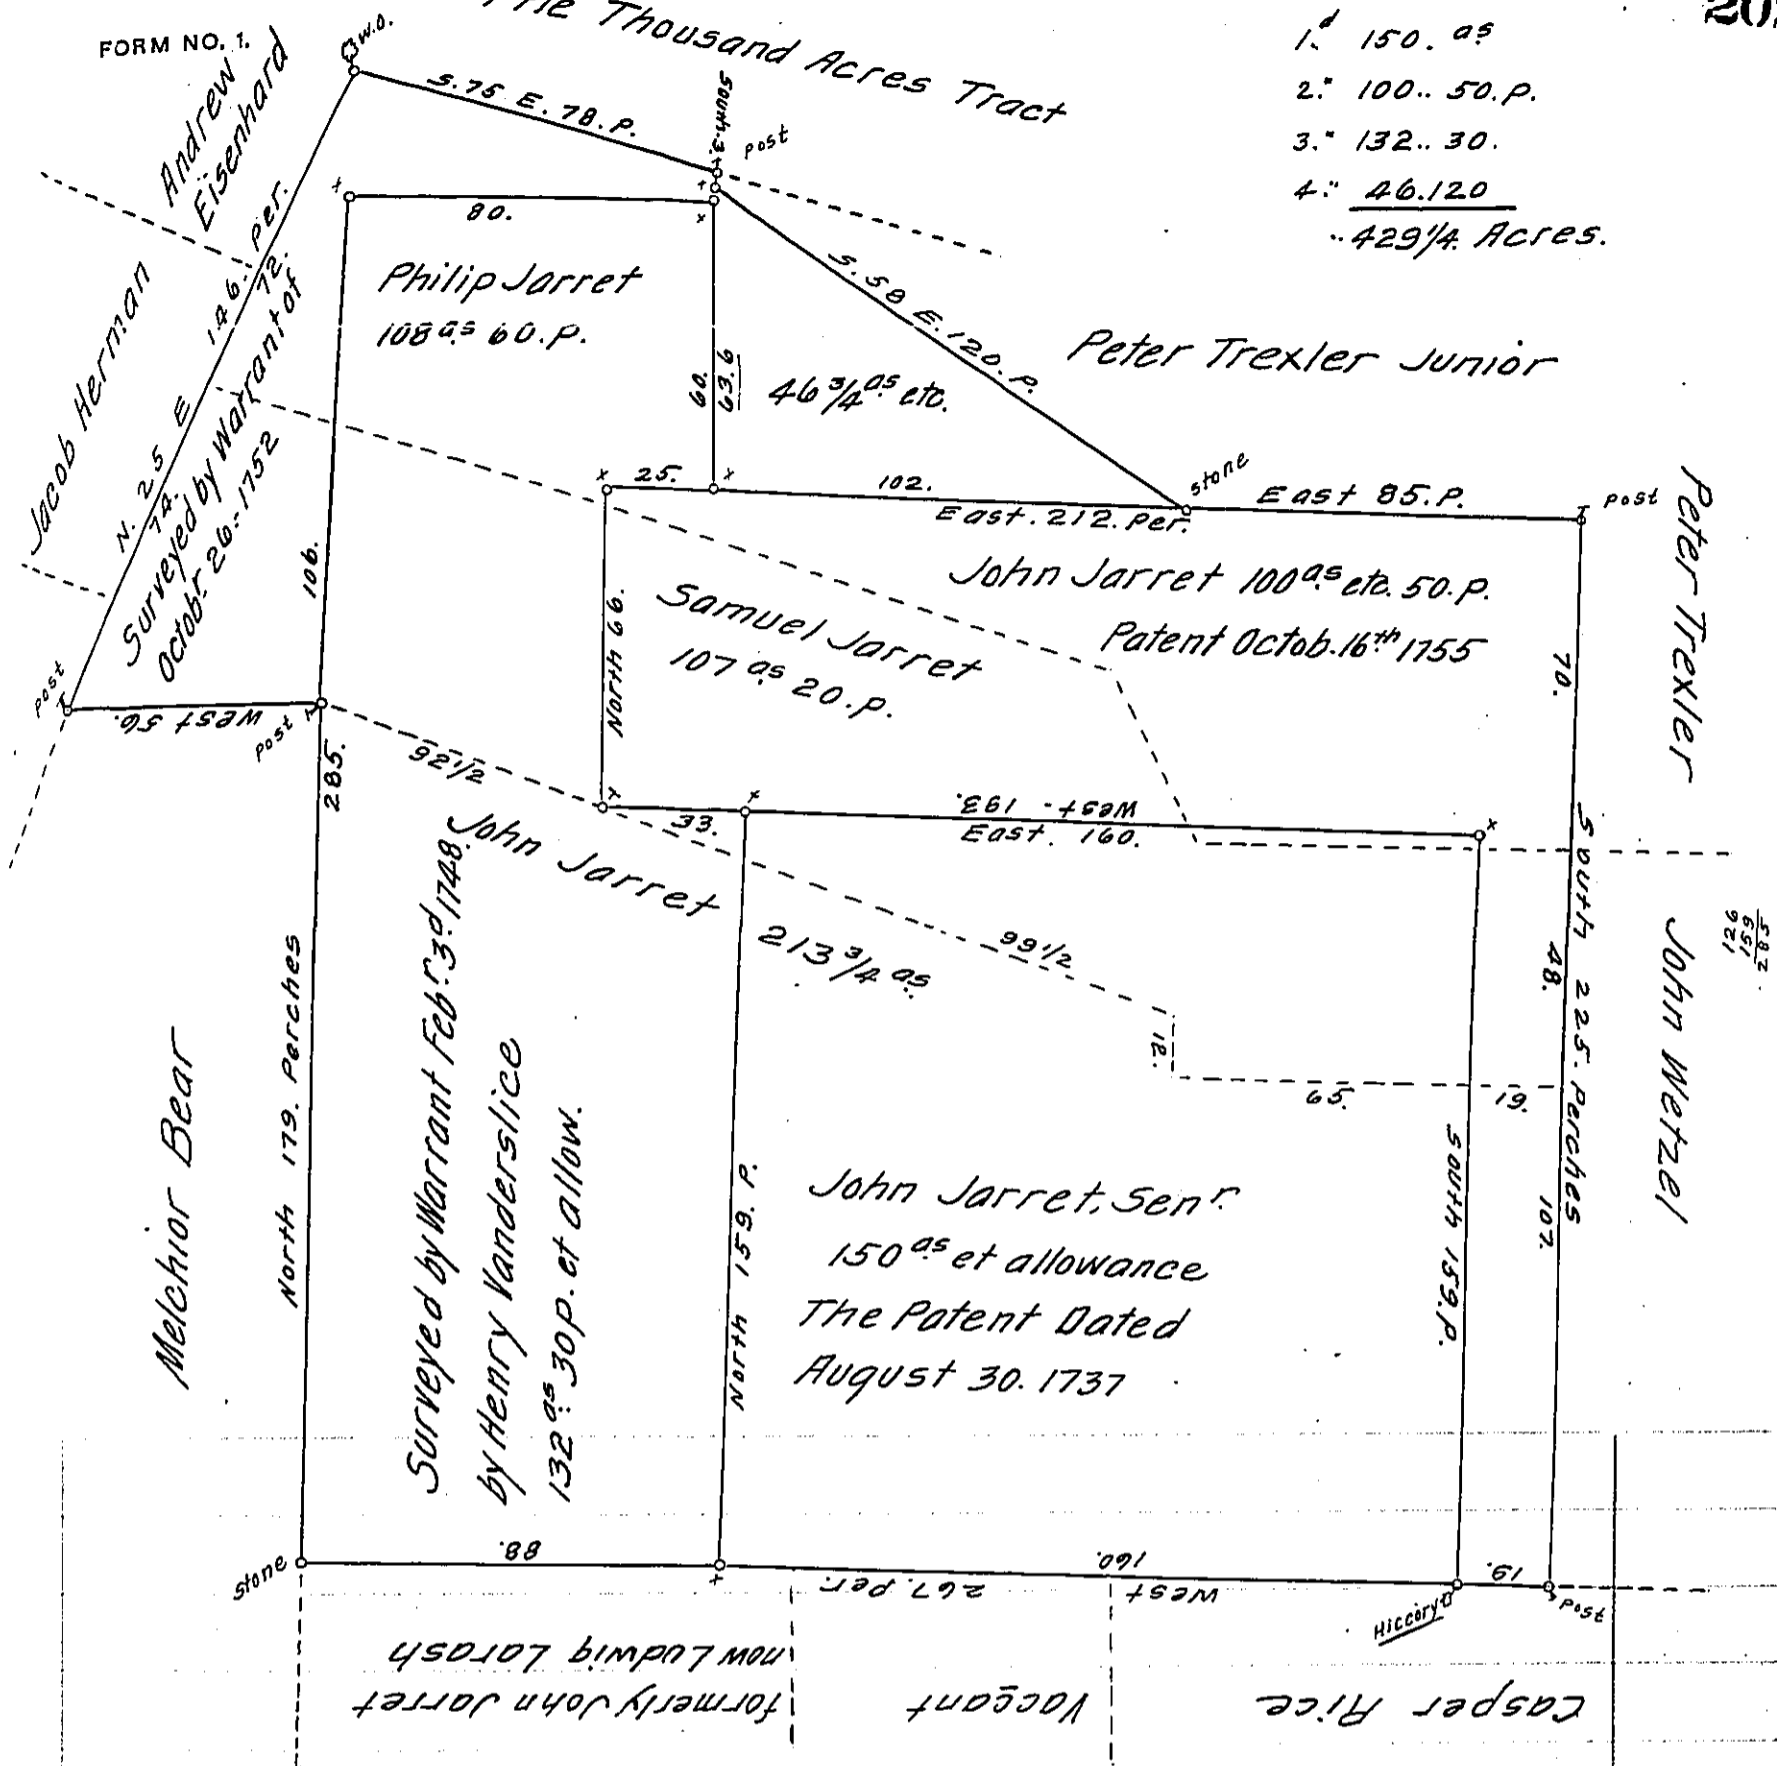 FORM NO. 1.
The Thousand Acres Tract
20
1.d 150. as
2." 100.. 50.P.
3." 132.. 30.
4." 46.120
..429 1/4 Acres.
W.O.
S.75 E. 78. P.
South.3.
post
Andrew
Eisenhard
Jacob Herman
N. 25 E 146. Per.
74.
72.
Surveyed by Warrant of
Octobr. 26.- 1752
80.
Philip Jarret
108 as 60. P.
60.
63.6
46 3/4 as etc.
S. 58 E. 120. P.
Peter Trexler Junior
106.
25.
102.
East. 212. Per.
stone
East 85. P.
post
Peter Trexler
John Jarret 100 as etc. 50. P.
Patent Octob. 16th 1755
Samuel Jarret
107 as 20. p.
North 66.
70.
post
West 56.
post
285.
92 1/2
33.
West - 193.
East. 160.
John Jarret
213 3/4 as
99 1/2
12.
65.
19.
South 225. Perches
48.
107.
John Wetzel
582
659
921
Melchior Bear
North 179. Perches
Surveyed by Warrant Febr. 3d 1748
by Henry Vanderslice
132 as 30 p. et allow.
North 159. P.
John Jarret, Senr.
150 as et allowance
The Patent Dated
August 30. 1737
South 159. P.
stone
88.
160.
West 267. Per.
19.
Hiccory
post
formerly John Jarret
now Ludwig Larash
Vaccant
Casper Rice